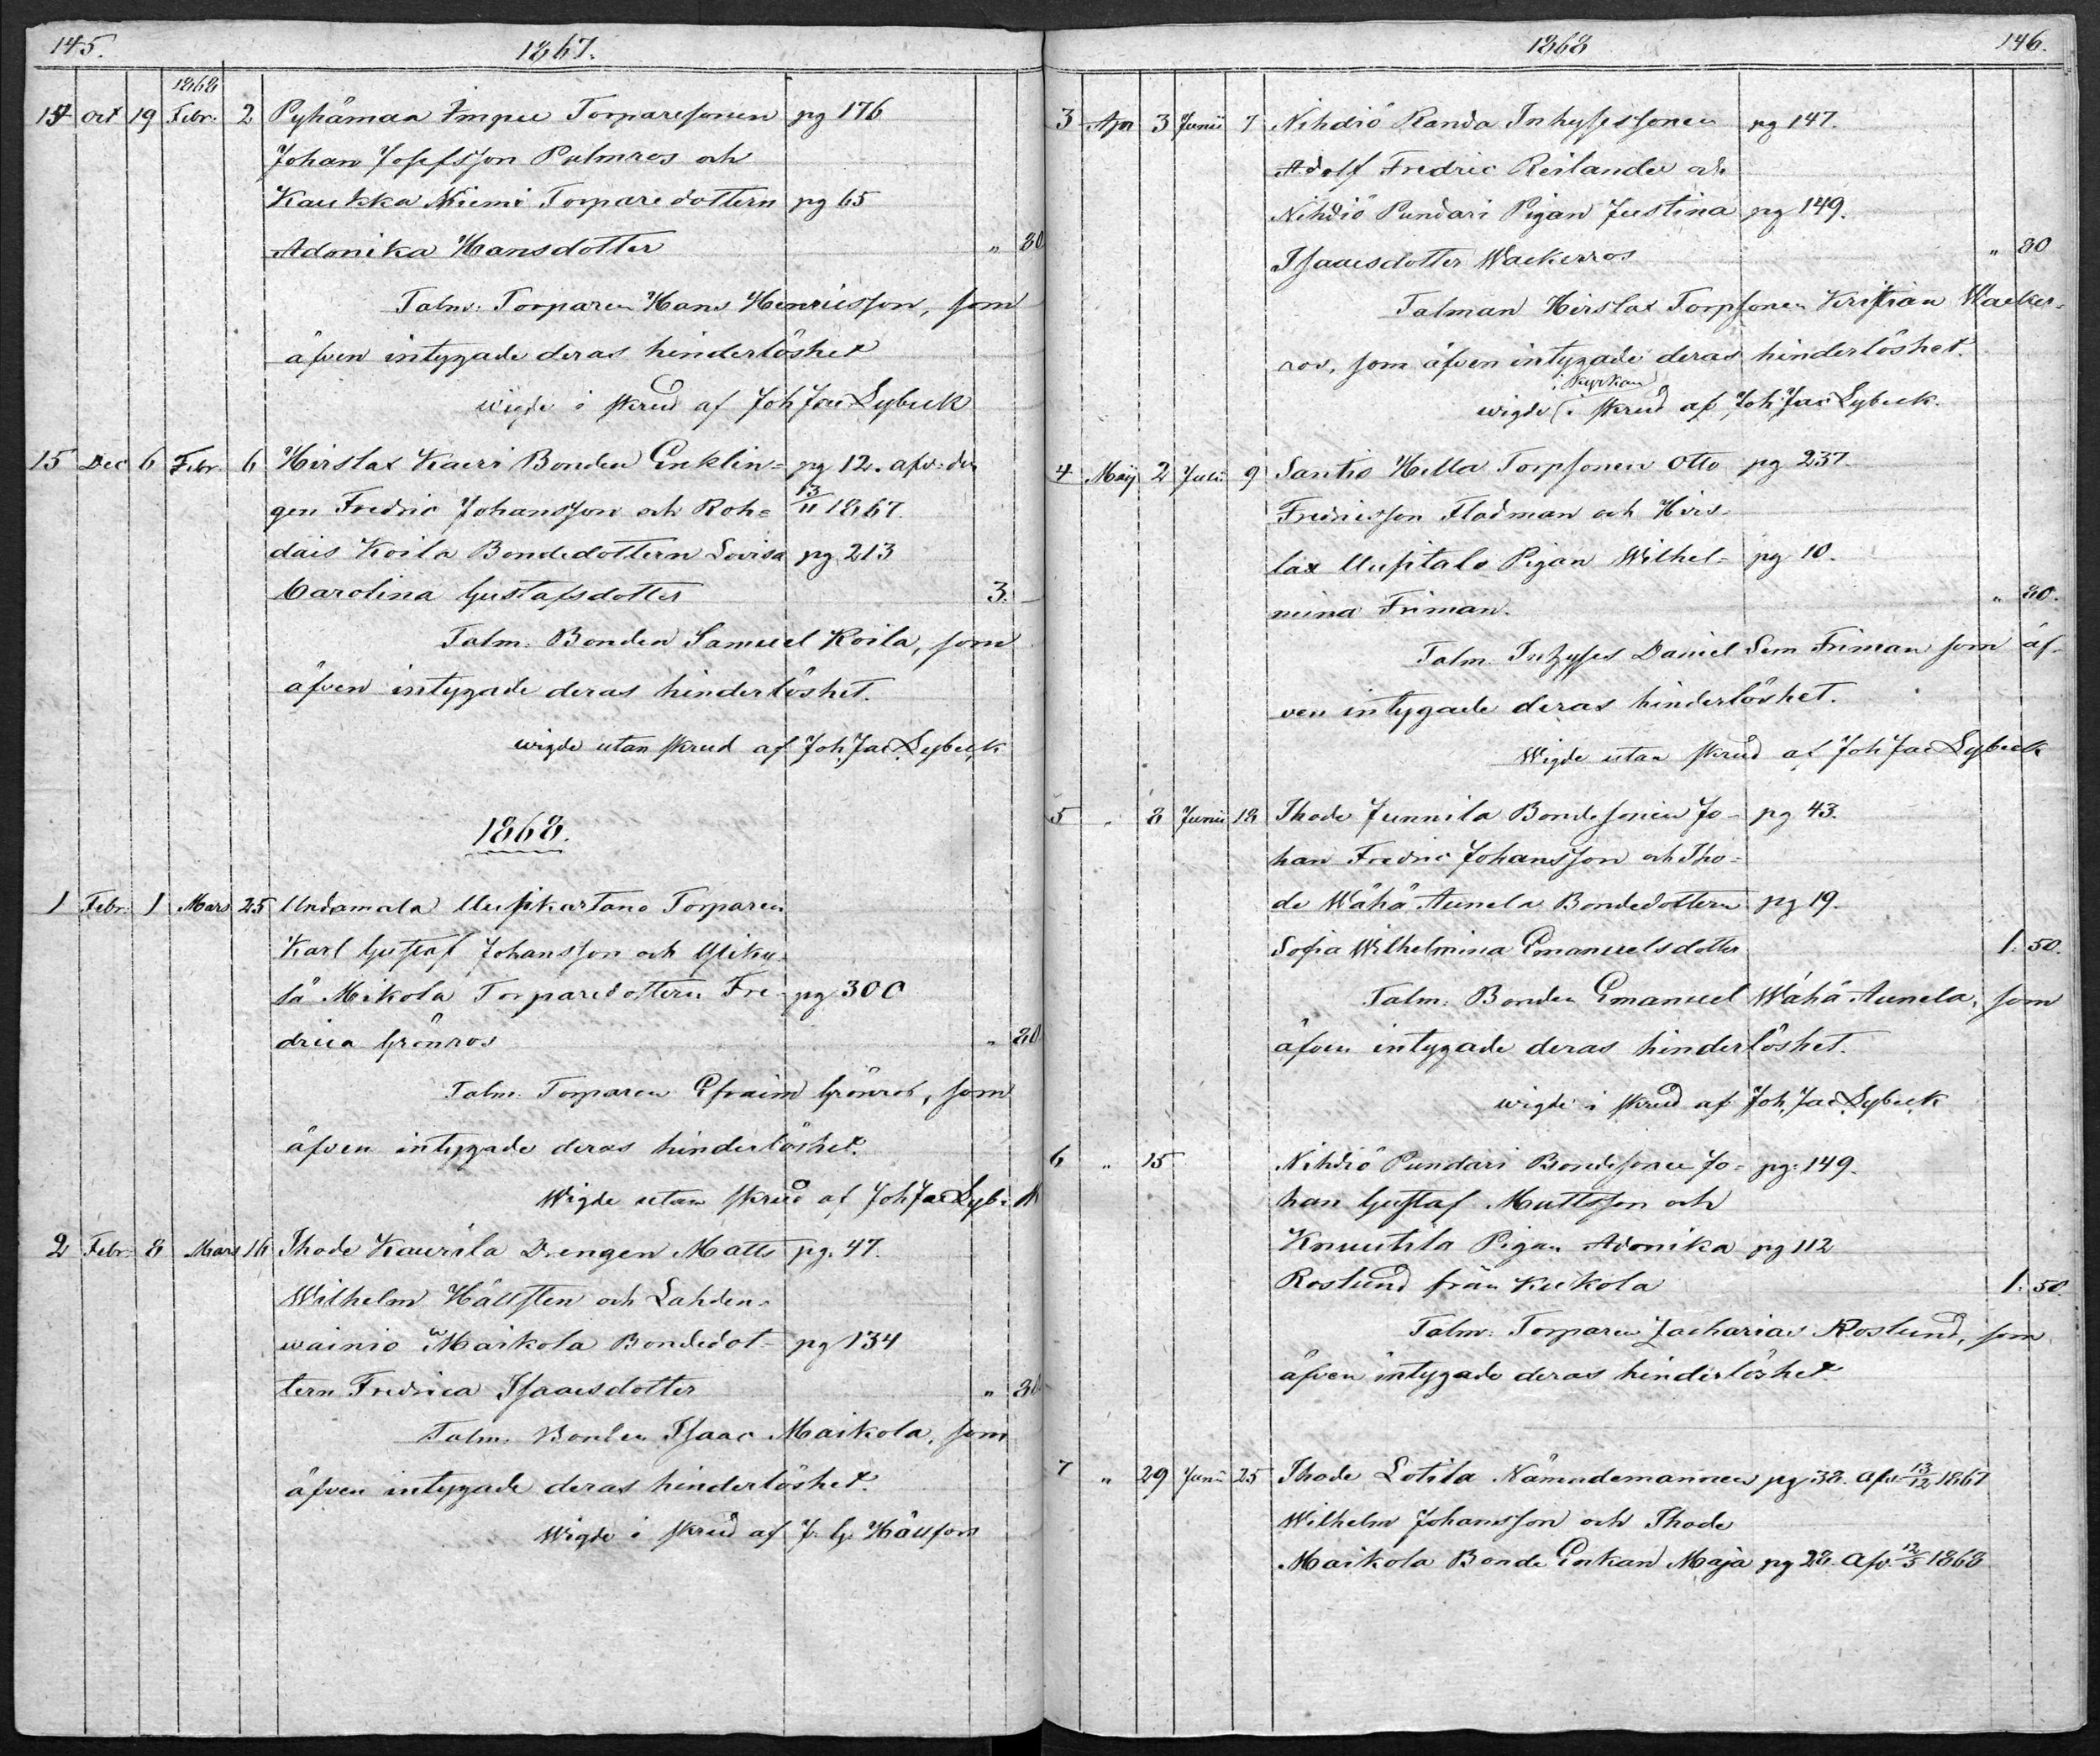 145.
1867.
1868
14 Oct 19 Febr. 2 Pyhämaa Impee Torparesonen pg 176
Johan Josefsson Palmros och
Kaukka Niemi Torparedottern pg 65
Adamika Hansdotter " 80
Talm: Torparen Hans Henricsson, som
äfven intygade deras hinderlöshet
wigde i skrud af Joh Jac Lybeck
15 Dec 6 Febr. 6 Hirslax Kauri Bonden Enklin- pg 12. afw: den
gen Fredric Johansson och Roh= 13/11 1867
dais Koila Bondedottern Lovisa pg 213
Carolina Gustafsdotter 3. –
Talm. Bonden Samuel Koila, som
äfven intygade deras hinderlöshet.
wigde utan skrud af Joh. Jac Lybeck
1868.
1 Febr. 1 Mars 25 Undamala Uusikartano Torparen
Karl Gustaf Johansson och Yliky-
lä Mikola Torparedottern Fre- pg 300
drica Grönros " 80
Talm. Torparen Efraim Grönros, som
äfven intygade deras hinderlöshet.
Wigde utan skrud af Joh Jac Lybeck
2 Febr. 8 Mars 16 Ihode Kaurila Drengen Matts pg. 47.
Wilhelm Hällsten och Lahden-
wainio Maikola Bondedot- pg 134
tern Fredrica Isaacsdotter " 30
Talm. Bonden Isaac Maikola, som
äfven intygade deras hinderlöshet.
Wigde i skrud af J. G. Hällfors
1868
146.
3 Apr 3 Junii 7 Nihdiö Randa Inhysessonen pg 147.
Adolf Fredric Reilander och
Nihdiö Pundari Pigan Justina pg 149.
Isaacsdotter Wackerros " 80
Talman Hirslax Torpsonen Kristian Wacker-
ros, som äfven intygade deras hinderlöshet.
i kyrkan
wigde i skrud af Joh Jac Lybeck.
4 Maij 2 Juli 9 Santio Hilla Torpsonen Otto pg 237.
Fredricsson Flodman och Hirs-
lax Uusitalo Pigan Wilhel- pg 10.
mina Friman. " 80.
Talm. Inhyses Daniel Sem Friman som äf-
ven intygade deras hinderlöshet.
Wigde utan skrud af Joh Jac Lybeck
5 " 8 Junii 18 Ihode Junnila Bondesonen Jo- pg 43.
han Fredric Johansson och Iho-
de Wähä Aunela Bondedottern pg 19.
Sofia Wilhelmina Emanuelsdotter 1. 50.
Talm. Bonden Emanuel Wähä Aunela, som
äfven intygade deras hinderlöshet.
wigde i skrud af Joh. Jac Lybeck
6 " 15 Nihdiö Pundari Bondesonen Jo- pg: 149.
han Gustaf Mattsson och
Knuutila Pigan Adamika pg 112
Roslund från Kukola 1. 50.
Talm. Torparen Zacharias Roslund, som
äfven intygade deras hinderlöshet
7 " 29 Junii 25 Ihode Lotila Nämndemannen pg 38. afw 13/12 1867
Wilhelm Johansson och Ihode
Maikola Bonde Enkan Maja pg 28. afw. 12/5 1868